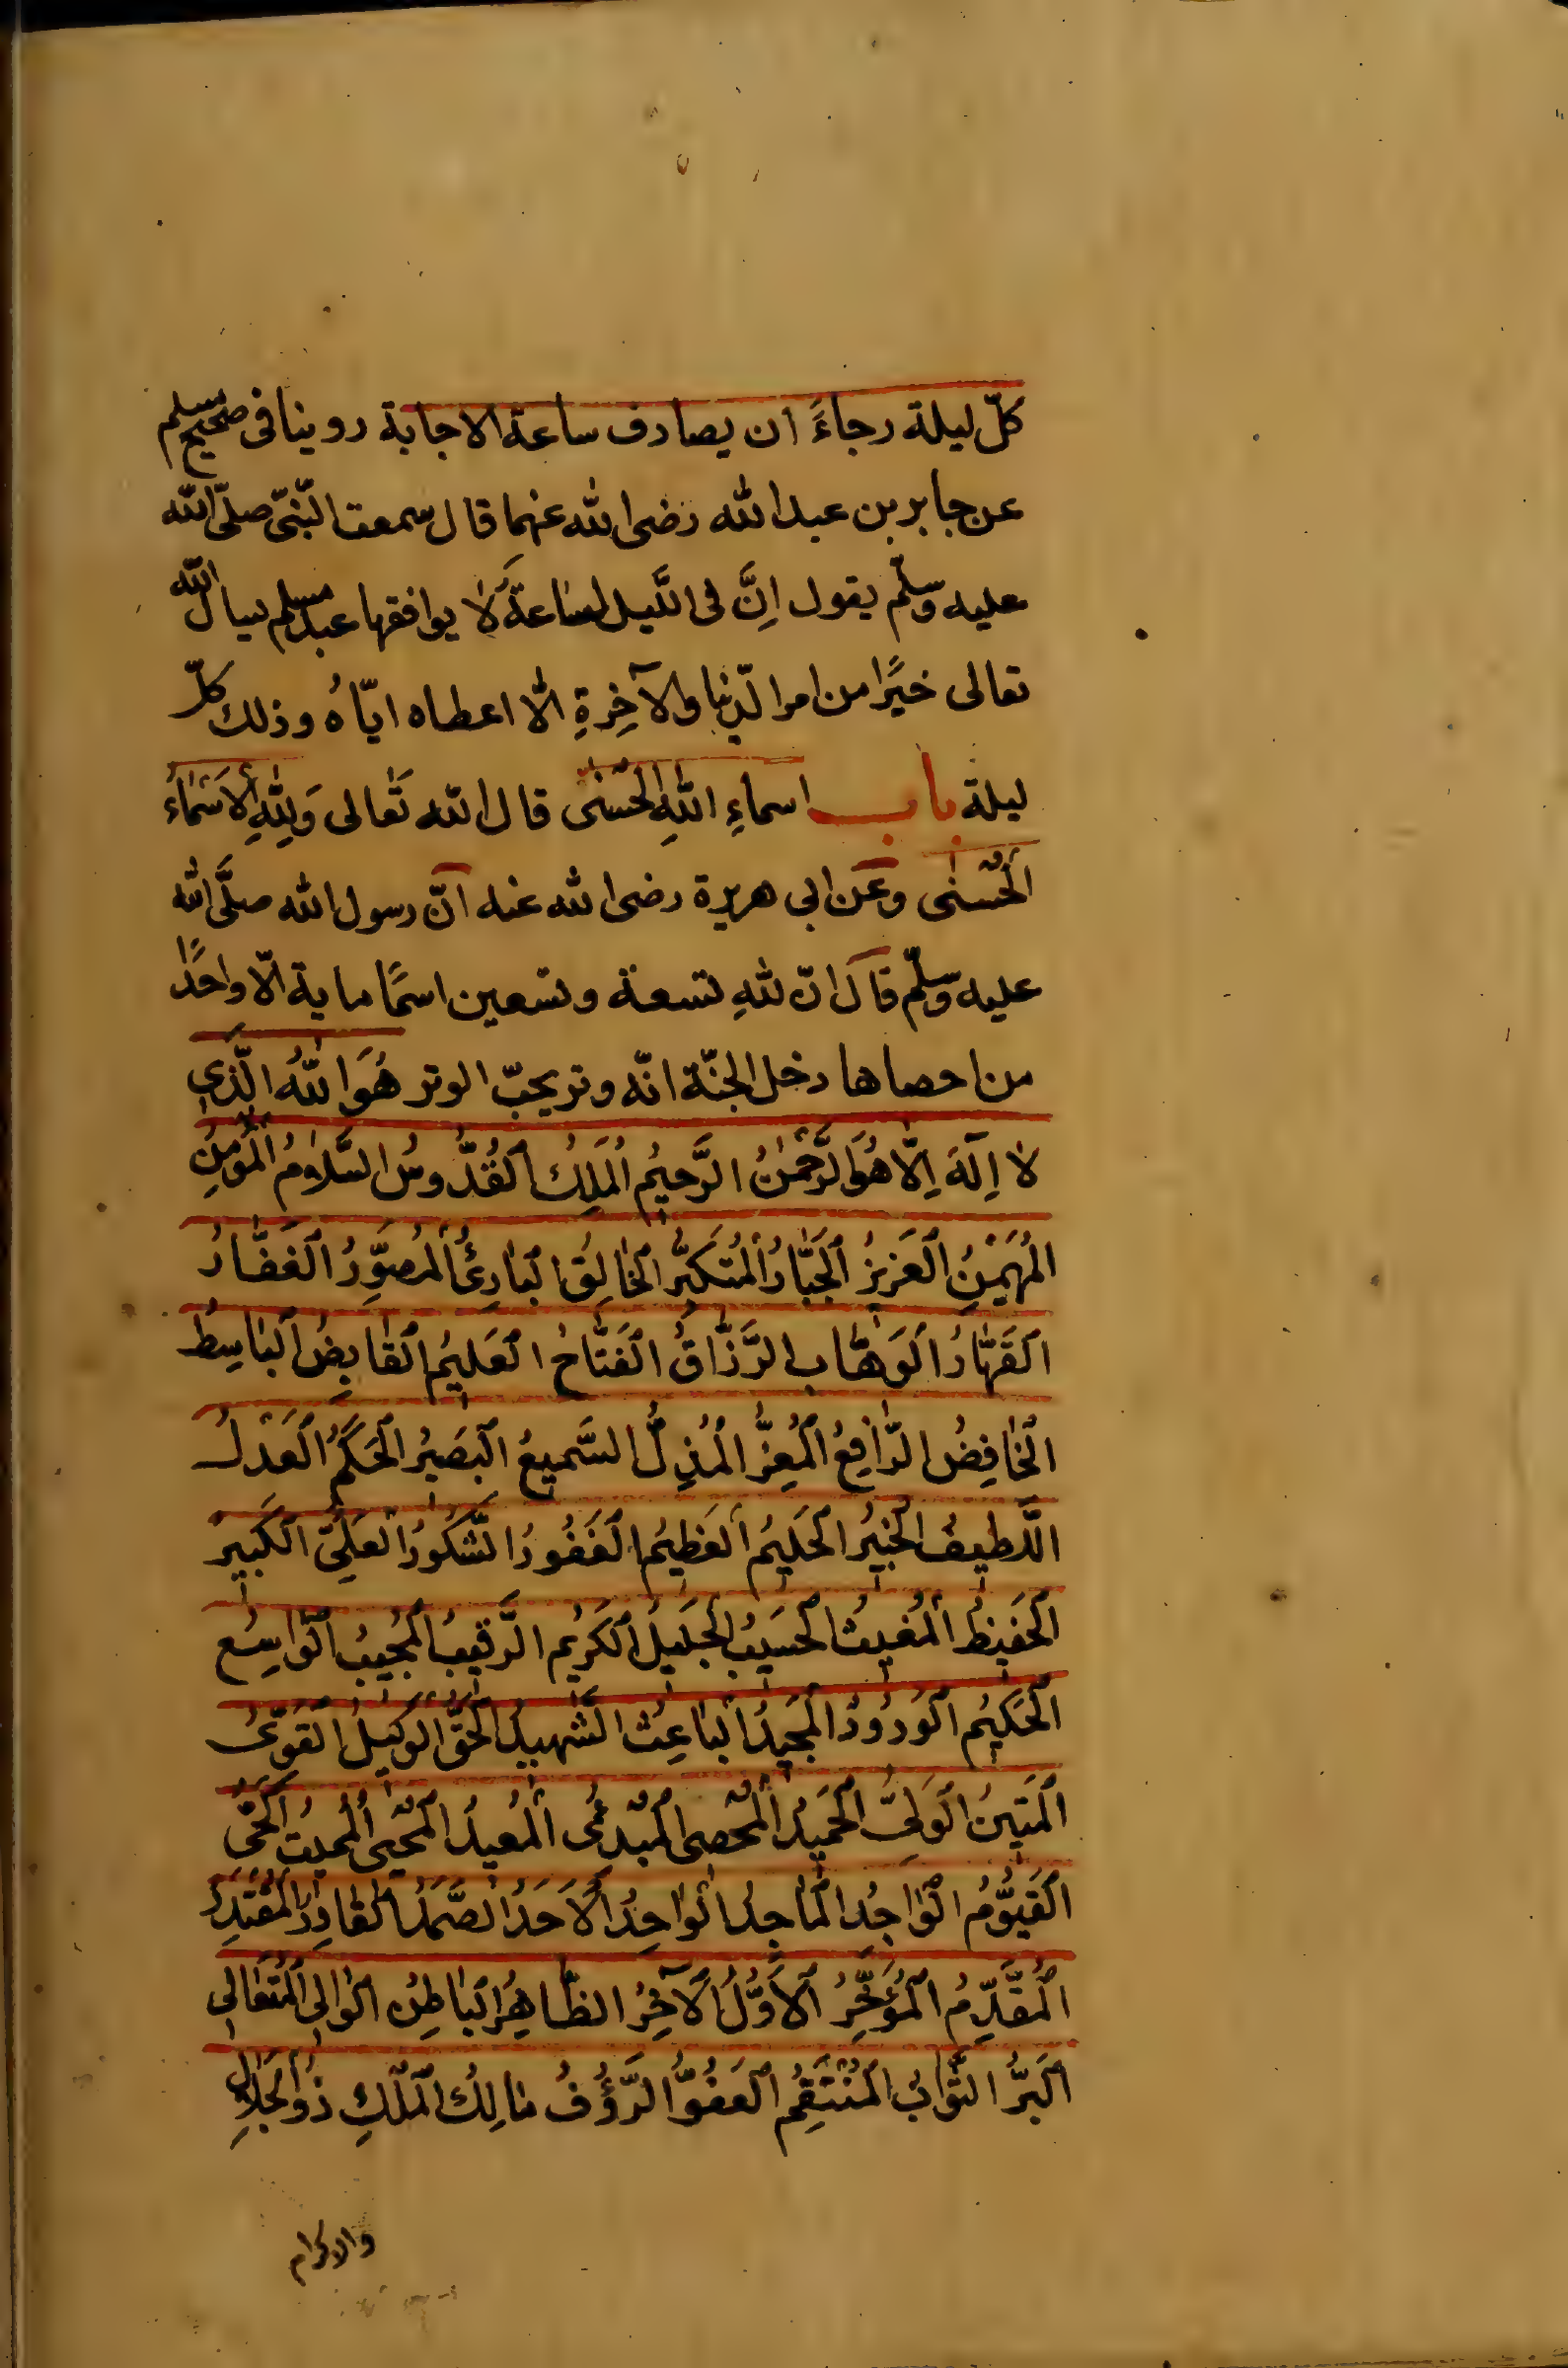 كلّ ليلة رجاءَ ان يصادف ساعة الاجابة روينا فى صحيح مسلم
عن جابر بن عبد الله رضى الله عنهما قال سمعت النّبىّ صلّى الله
عليه وسلّم يقول اِنَّ فى اللَّيل لساعةً لا يوافقها عبد مسلم يسال الله
تعالى خيرًا من امر الدّنيا والآخِرةِ الّا اعطاه ايّاهُ وذلك كلّ
ليلة باب اسماءِ اللهِ الحُسْنٰى قال الله تَعٰالى وَلِلّٰهِ الاَسْمٰاءُ
الْحُسْنٰى وعَن ابى هريرة رضى الله عنه انّ رسول الله صلَّى الله
عليه وسلّم قال انّ للهِ تسعة وتسعين اسمًا ماية الّا واحدًا
من احصاها دخل الجنّة انّه وتر يحبّ الوتر هُوَ اللهُ الَّذى
لا اِلٓهَ اِلّا هُوَ الرَّحْمٰنُ الرَّحيُم الْمَلِكُ الْقُدُّوسُ السَّلٰامُ الْمُؤْمِنُ
الْمُهَيْمِنُ الْعَزيزُ الْجَبّٰارُ الْمُتَكَبِّرُ الْخٰالِقُ الْبٰارِئُ الْمُصَوِّرُ الْغَفّٰارُ
الْقَهّٰارُ الْوَهّٰاب الرَّزّٰاقُ الْفَتّٰاحُ الْعَليُم الْقٰابِضُ الْبٰاسِطُ
الْخٰافِضُ الرّٰافِعُ الْمُعِزُّ الْمُذِلُّ السَّميعُ الْبَصيُر الْحَكَمُ الْعَدْلُ
اللَّطيفُ الْخَبيُر الْحَليُم الْعَظيُم الْغَفُورُ الشَّكُورُ الْعَلِىّ الْكَبير
الْحَفيظُ الْمُغيثُ الْحَسيبُ الْجَليلُ الْكَريُم الرَّقيبُ الْمُجيبُ الْوٰاسِعُ
الْحَكيُم الْوَدُودُ الْمَجيدُ الْبٰاعِثُ الشَّهيدُ الْحَقُّ الْوَكيلُ الْقَوِىُّ
الْمَتينُ الْوَلِىُّ الْحَميدُ الْمُحْصِى الْمُبْدِئُ الْمُعيدُ الْمُحْيى الْمُميتُ الْحَىُّ
الْقَيُّومُ الْوٰاجِدُ الْمٰاجِدُ الْوٰاحِدُ الْاَحَدُ الصَّمَدُ الْقٰادِرُ الْمُقْتَدِرُ
الْمُقَدِّمُ الْمُؤَخِّرُ الْاَوَّلُ الْآخِرُ الظّٰاهِرُ الْبٰاطِنُ الْوٰالِى الْمُتَعٰالى
الْبَرُّ التَّوّٰابُ الْمُنْتَقِمُ الْعَفُوُّ الرَّؤُفُ مٰالِكُ الْمُلْكِ ذُو الْجَلٰالِ
والاكرام